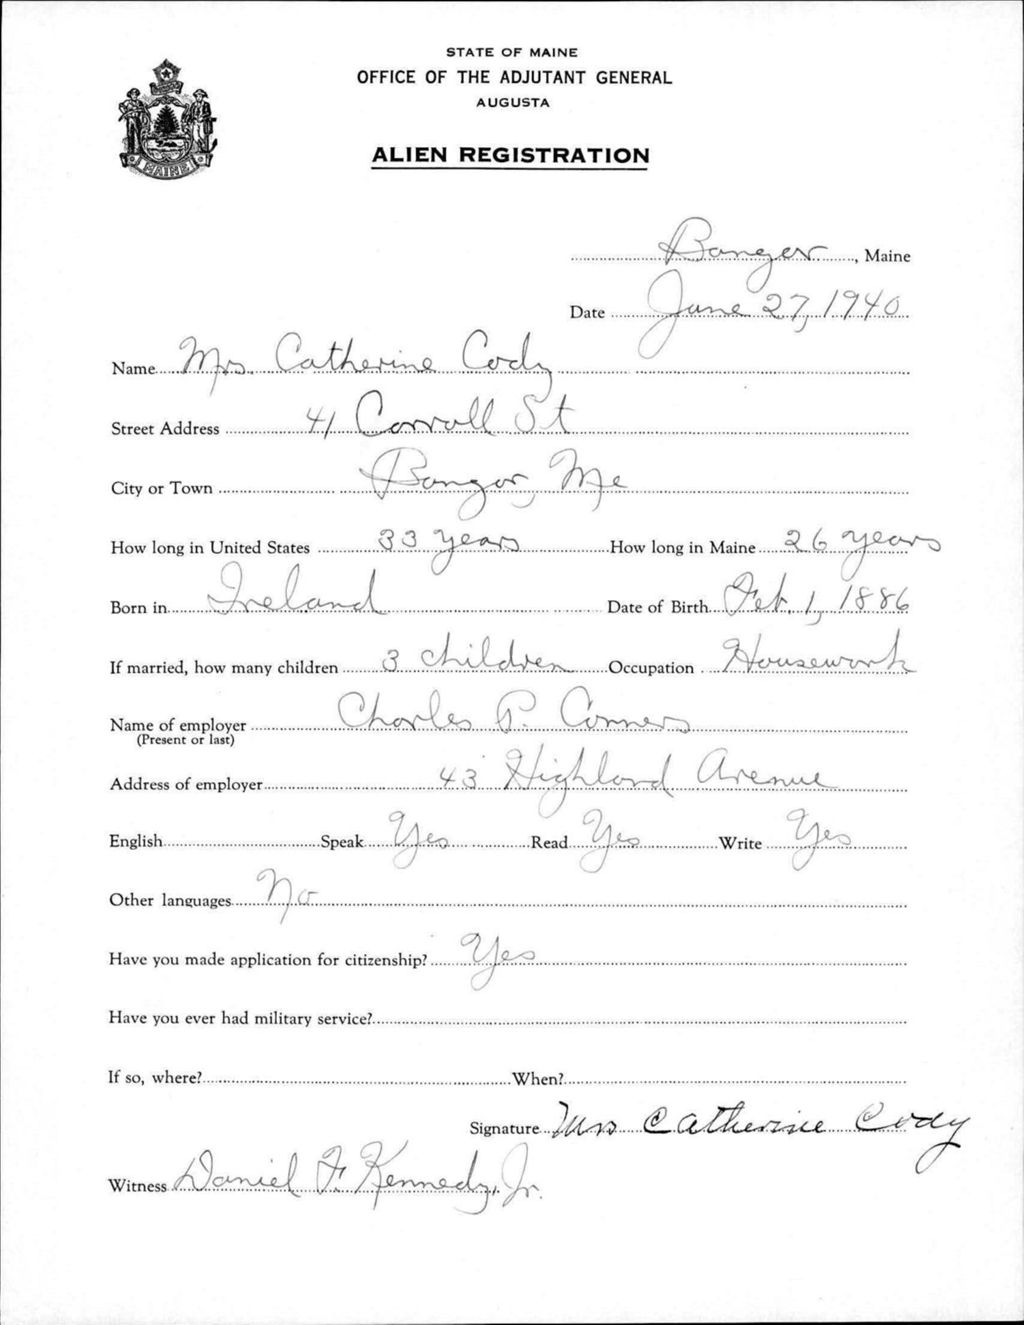 STATE OF MAINE
OFFICE OF THE ADJUTANT GENERAL
AUGUSTA
ALIEN REGISTRATION
MAINE
Bangor, Maine
Date June 27, 1940
Name Mrs. Catherine Cody
Street Address 41 Carroll St
City or Town Bangor, Me
How long in United States 33 years How long in Maine 26 years
Born in Ireland Date of Birth Feb. 1, 1886
If married, how many children 3 children Occupation Housework
Name of employer Charles P. Conners
(Present or last)
Address of employer 43 Highland Avenue
English Speak Yes Read Yes Write Yes
Other languages No
Have you made application for citizenship? Yes
Have you ever had military service?
If so, where? When?
Signature Mrs Catherine Cody
Witness Daniel F. Kennedy, Jr.